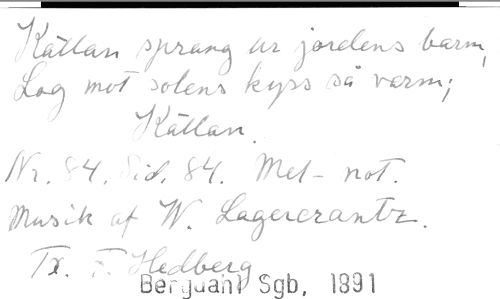 Källan sprang ur jordens barm,
Log mot solens kyss så varm;
Källan.
Nr. 84. Sid. 84. Mel- not.
Musik af W. Lagercrantz.
Tx. F. Hedberg
Bergdahl Sgb, 1891